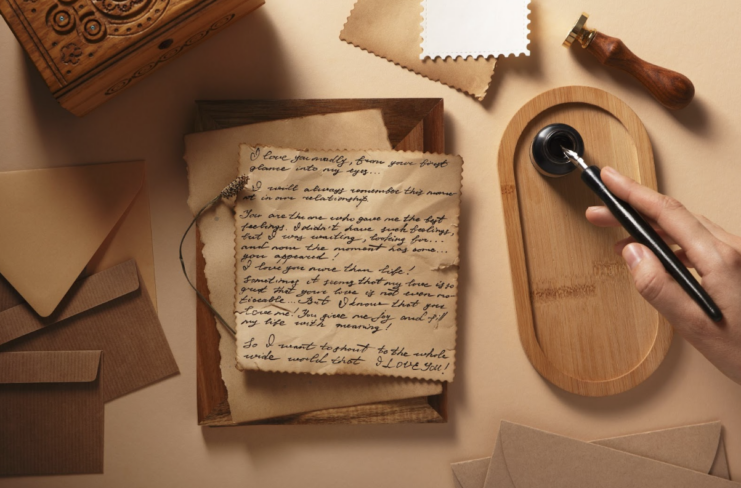 I love you madly, from your first
glance into my eyes...
I will always remember this mome
nt in our relationship.
You are the one who gave me the best
feelings. I didn't have such feelings,
but I was waiting, looking for...
and now the moment has come...
you appeared!
I love you more than life!
Sometimes it seems that my love is so
great that your love is not even no
ticeable... But I know that you
love me! You give me joy and fill
my life with meaning!
So I want to shout to the whole
wide world that I LOVE YOU!